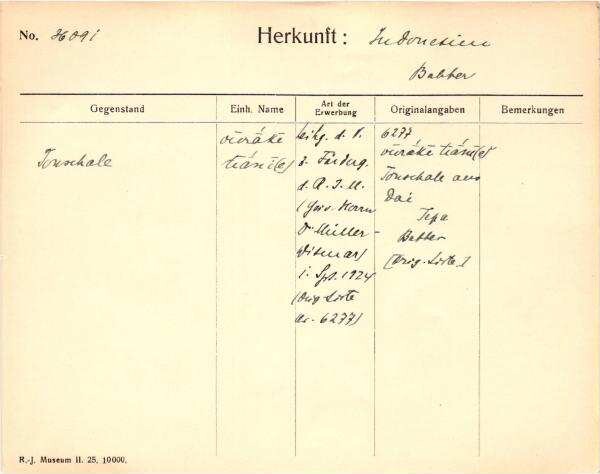 No. 36091
Herkunft: Indonesien
Babber
Gegenstand
Einh. Name
Art der Erwerbung
Originalangaben
Bemerkungen
Tonschale
tiáni(e)
d. V.
z. Födrg.
d. R. J. M.
Dr Müller-
Wismar)
1. Spt. 1924
(Orig Liste
Nr. 6277)
6277
tiáni(e)
Tonschale aus
Dai
Tepa
Babber
(Orig. Liste)
R.-J. Museum II. 25. 10000.